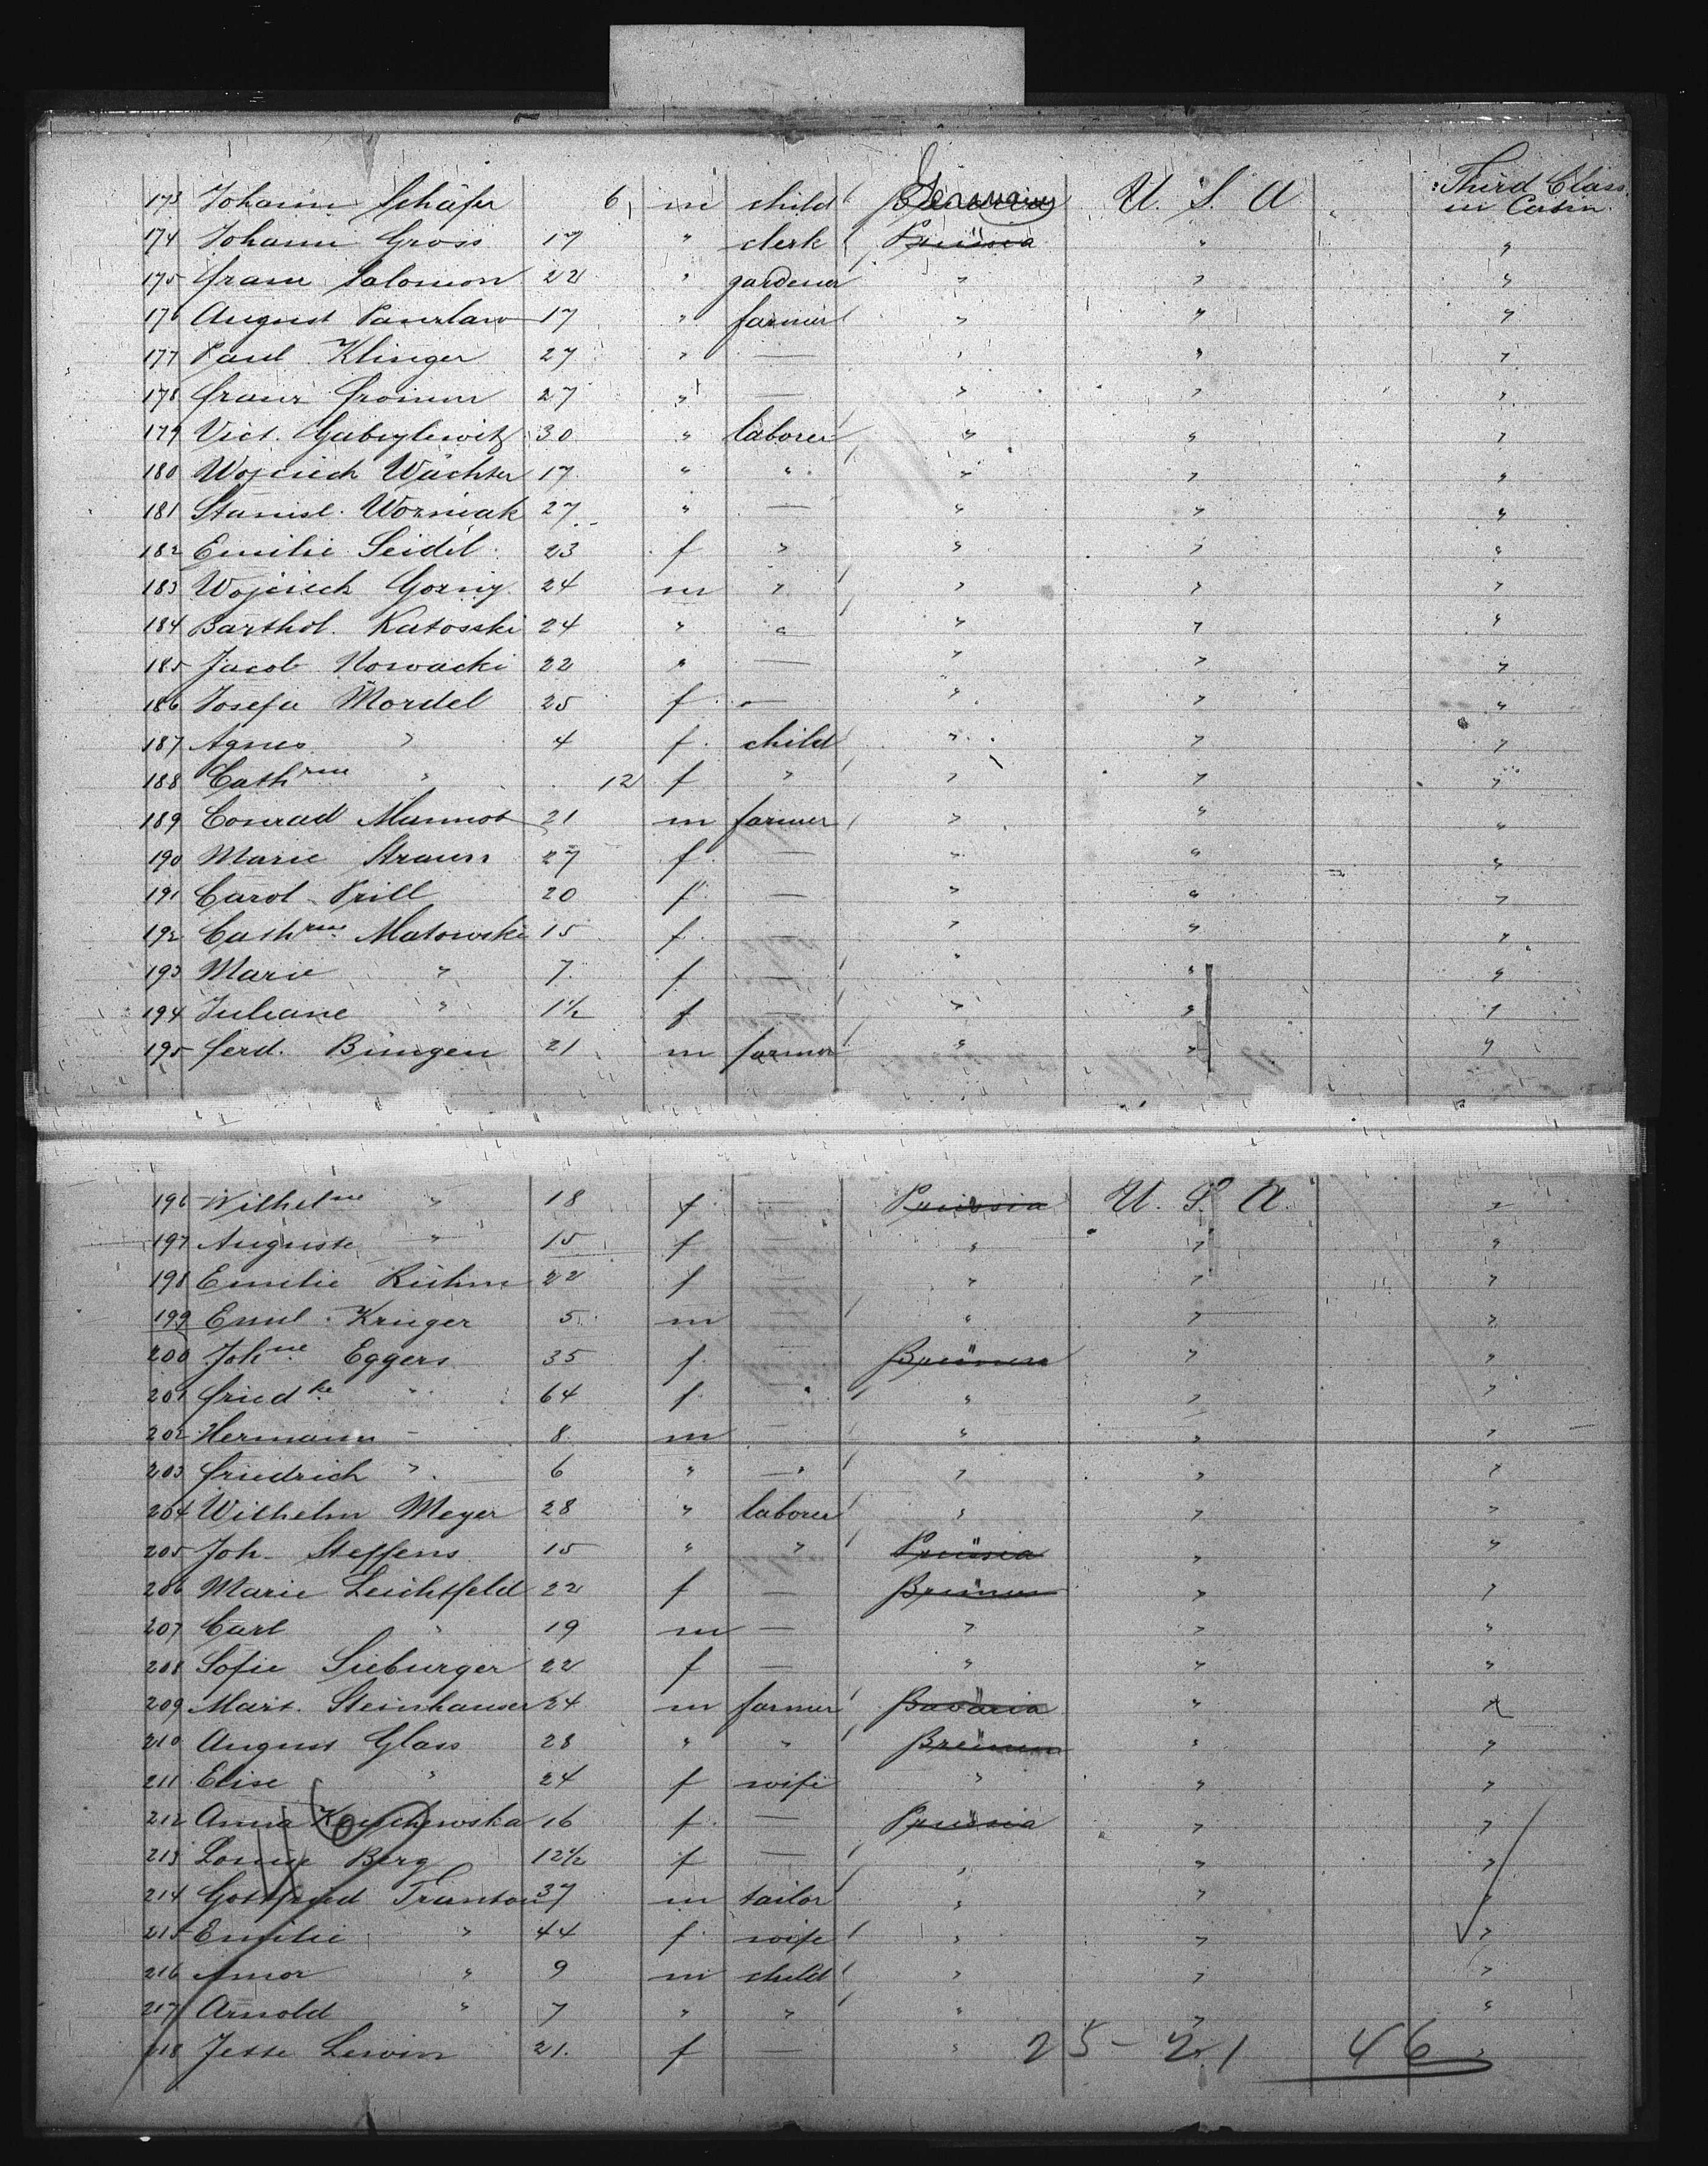 173 Johann Schäfer 6 m child Germany U. S. A Third Class in Cabin
174 Johann Gross 17 " clerk Prussia " "
175 Franz Salomon 22 " gardener " " "
176 August Panzlaw 17 " farmer " " "
177 Paul Klinger 27 " — " " "
178 Franz 27 " — " " "
179 Vict. Gabrylewitz 30 " laborer " " "
180 Wojciech Wächter 17 " " " " "
181 Stanisl. Wozniak 27 " — " " "
182 Emilie Seidel 23 f " " " "
183 Wojciech Gorny 24 m " " " "
184 Barthol. Katosski 24 " " " " "
185 Jacob Nowacki 22 " — " " "
186 Josefa Mordel 25 f — " " "
187 Agnes " 4 f child " " "
188 Cathrine " 12 f " " " "
189 Conrad 21 m farmer " " "
190 Marie 27 f — " " "
191 Carol. Prill 20 f — " " "
192 Cathrine Matowski 15 f — " " "
193 Marie " 7 f — " " "
194 Juliane " 1½ f — " " "
195 Ferd. Büngen 21 m farmer " " "
196 Wilhelme " 18 f — Prussia U. S. A. "
197 Auguste " 15 f — " " "
198 Emilie Rühm 22 f — " " "
199 Emil Krüger 5 m — " " "
200 Johne Eggers 35 f — Bremen " "
201 Friedke " 64 f " " " "
202 Hermann " 8 m — " " "
203 Friedrich " 6 " — " " "
204 Wilhelm Meyer 28 " laborer " " "
205 Joh. Steffens 15 " " Prussia " "
206 Marie Leichtfeld 22 f — Bremen " "
207 Carl " 19 m — " " "
208 Sofie Sieburger 22 f — " " "
209 Mart. Steinhauser 24 m farmer Bavaria " "
210 August Glass 28 " " Bremen " "
211 Elise " 24 f wife " " "
212 Anna 16 f — Prussia " "
213 Louise Berg 12½ f — " " "
214 Gottfried 37 m tailor " " "
215 Emilie " 44 f wife " " "
216 Amor " 9 m child " " "
217 Arnold " 7 " " " " "
218 Jette Lewin 21. f — " "
25 - 21 46